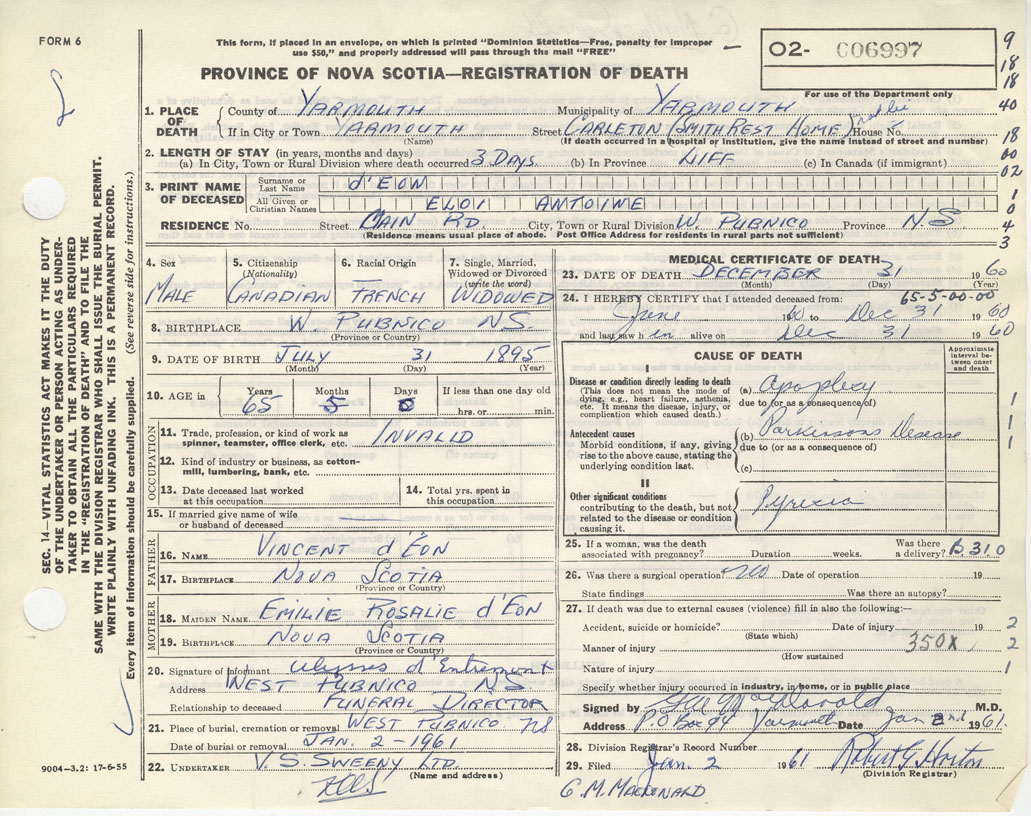 FORM 6
This form, if placed in an envelope, on which is printed "Dominion Statistics—Free, penalty for improper
use $50," and properly addressed will pass through the mail "FREE"
O2- 006997
PROVINCE OF NOVA SCOTIA—REGISTRATION OF DEATH
For use of the Department only
9
18
18
40
18
00
02
1
0
4
3
1. PLACE OF DEATH
County of YARMOUTH Municipality of YARMOUTH
If in City or Town YARMOUTH Street CARLETON (SMITH REST HOME) House No.
(Name) (If death occurred in a hospital or institution, give the name instead of street and number)
2. LENGTH OF STAY (in years, months and days)
(a) In City, Town or Rural Division where death occurred 3 DAYS (b) In Province LIFF (c) In Canada (if immigrant)
3. PRINT NAME OF DECEASED
Surname or Last Name d'EON
All Given or Christian Names ELOI ANTOINE
RESIDENCE No. Street MAIN RD. City, Town or Rural Division W. PUBNICO Province N.S
(Residence means usual place of abode. Post Office Address for residents in rural parts not sufficient)
4. Sex MALE
5. Citizenship (Nationality) CANADIAN
6. Racial Origin FRENCH
7. Single, Married, Widowed or Divorced (write the word) WIDOWED
8. BIRTHPLACE W. PUBNICO NS.
(Province or Country)
9. DATE OF BIRTH JULY 31 1895
(Month) (Day) (Year)
10. AGE in Years 65 Months 5 Days If less than one day old hrs. or min.
OCCUPATION
11. Trade, profession, or kind of work as spinner, teamster, office clerk, etc. INVALID
12. Kind of industry or business, as cotton-mill, lumbering, bank, etc.
13. Date deceased last worked at this occupation
14. Total yrs. spent in this occupation
15. If married give name of wife or husband of deceased
FATHER
16. NAME VINCENT d'EON
17. BIRTHPLACE NOVA SCOTIA
(Province or Country)
MOTHER
18. MAIDEN NAME EMILIE ROSALIE d'EON
19. BIRTHPLACE NOVA SCOTIA
(Province or Country)
20. Signature of informant Ulysses d'Entremont
Address WEST PUBNICO NS
Relationship to deceased FUNERAL DIRECTOR
21. Place of burial, cremation or removal WEST PUBNICO NS
Date of burial or removal JAN. 2-1961
22. UNDERTAKER V.S. SWEENY LTD.
(Name and address)
MEDICAL CERTIFICATE OF DEATH
23. DATE OF DEATH DECEMBER 31 1960
(Month) (Day)
65-5-00-00
24. I HEREBY CERTIFY that I attended deceased from:
June 1960 to Dec 31 1960
and last saw h im alive on Dec 31 1960
CAUSE OF DEATH
Approximate interval between onset and death
I
Disease or condition directly leading to death
(This does not mean the mode of dying, e.g., heart failure, asthenia, etc. It means the disease, injury, or complication which caused death.)
(a) Apoplexy
due to (or as a consequence of)
Antecedent causes
Morbid conditions, if any, giving rise to the above cause, stating the underlying condition last.
(b) Parkinsons Disease
due to (or as a consequence of)
(c)
II
Other significant conditions contributing to the death, but not related to the disease or condition causing it.
Pyrexia
1
1
1
25. If a woman, was the death associated with pregnancy? Duration weeks. Was there a delivery? B.310
26. Was there a surgical operation? no Date of operation 19
State findings Was there an autopsy?
27. If death was due to external causes (violence) fill in also the following:—
Accident, suicide or homicide? Date of injury 19 2
(State which)
Manner of injury 350X 2
(How sustained)
Nature of injury 1
Specify whether injury occurred in industry, in home, or in public place
Signed by MacDonald M.D.
Address P.O Box 94 Yarmouth Date Jan 2nd 1961
28. Division Registrar's Record Number
29. Filed Jan. 2 1961 Robert G Horton
(Division Registrar)
G.M. MACDONALD
SEC. 14—VITAL STATISTICS ACT MAKES IT THE DUTY
OF THE UNDERTAKER OR PERSON ACTING AS UNDER-
TAKER TO OBTAIN ALL THE PARTICULARS REQUIRED
IN THE "REGISTRATION OF DEATH" AND FILE THE
SAME WITH THE DIVISION REGISTRAR WHO SHALL ISSUE THE BURIAL PERMIT.
WRITE PLAINLY WITH UNFADING INK. THIS IS A PERMANENT RECORD.
Every item of information should be carefully supplied. (See reverse side for instructions.)
9004-3.2: 17-6-55